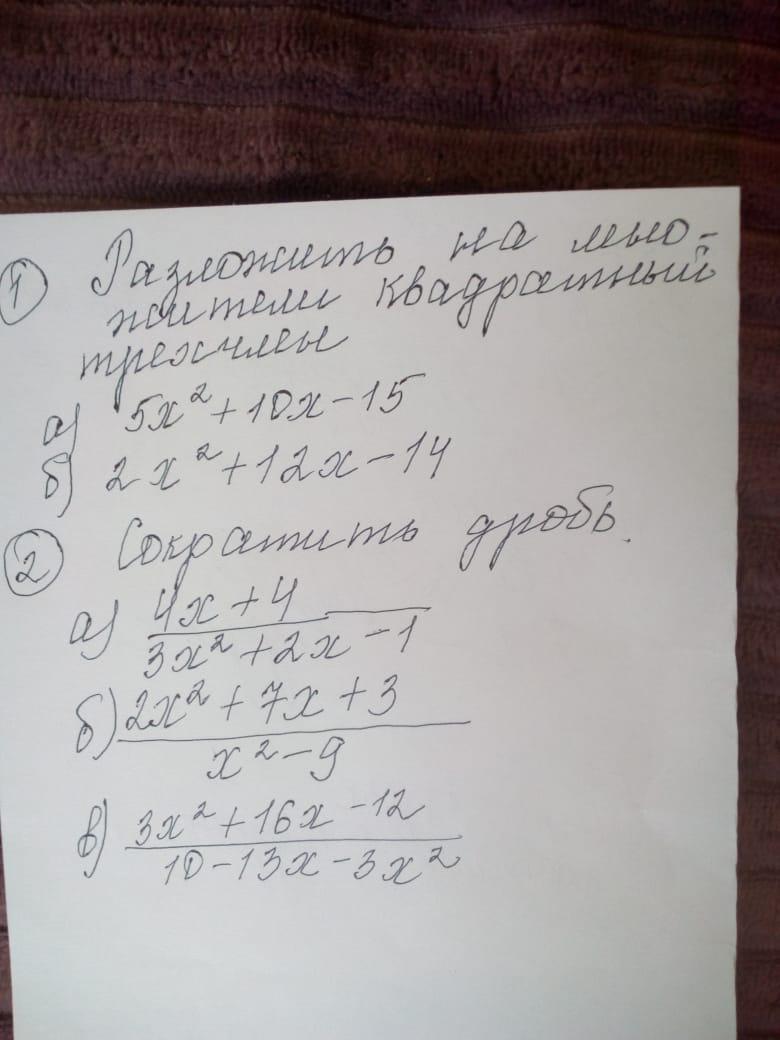 1 Разложить на мно-
жители квадратный
трехчлен
а) 5x² + 10x - 15
б) 2x² + 12x - 14
2 Сократить дробь.
а) 4x + 4
3x² + 2x - 1
б) 2x² + 7x + 3
x² - 9
в) 3x² + 16x - 12
10 - 13x - 3x²